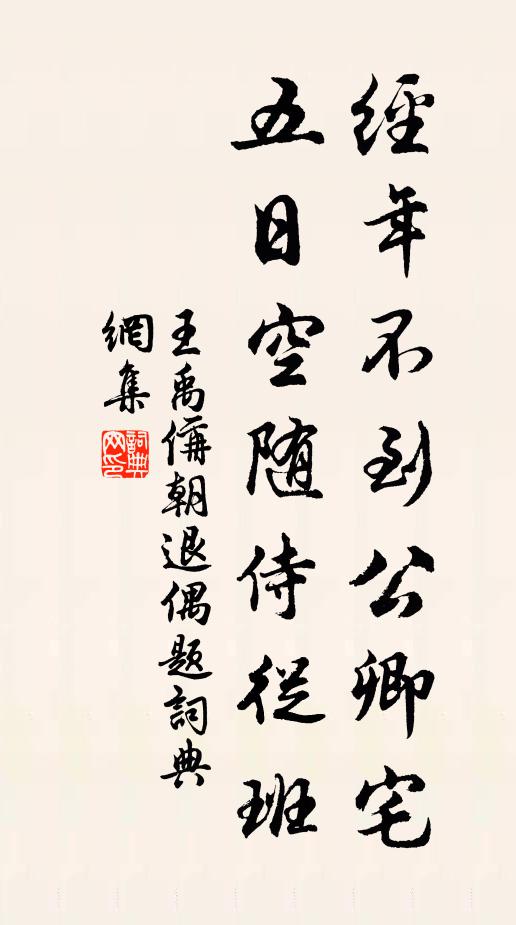 經年不到公卿宅
五日空随侍從班
王禹偁朝退偶题詞典
網集
詞典
网印